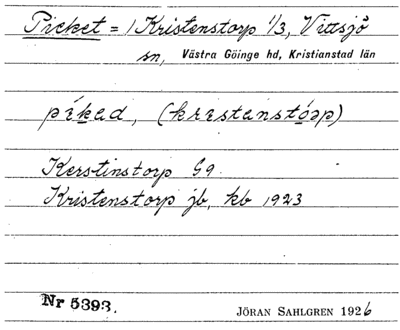 Picket = 1 Kristenstorp 1/3, Vittsjö
sn, Västra Göinge hd, Kristianstad län
píkad, (krɩstanstóɔp)
Kerstinstorp G9
Kristenstorp jb, kb 1923
Nr 5393. JÖRAN SAHLGREN 1926